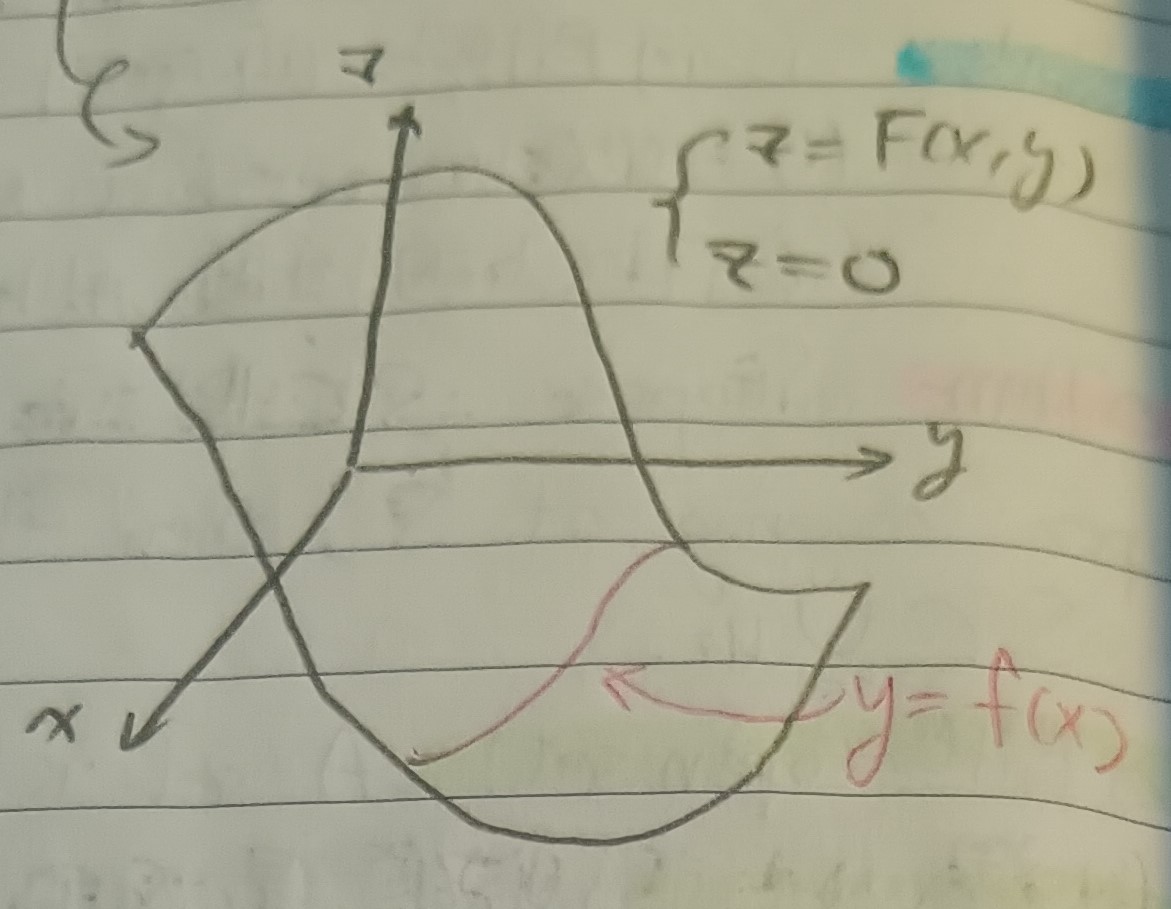 z
{ z = F(x, y)
z = 0
y
x
y = f(x)